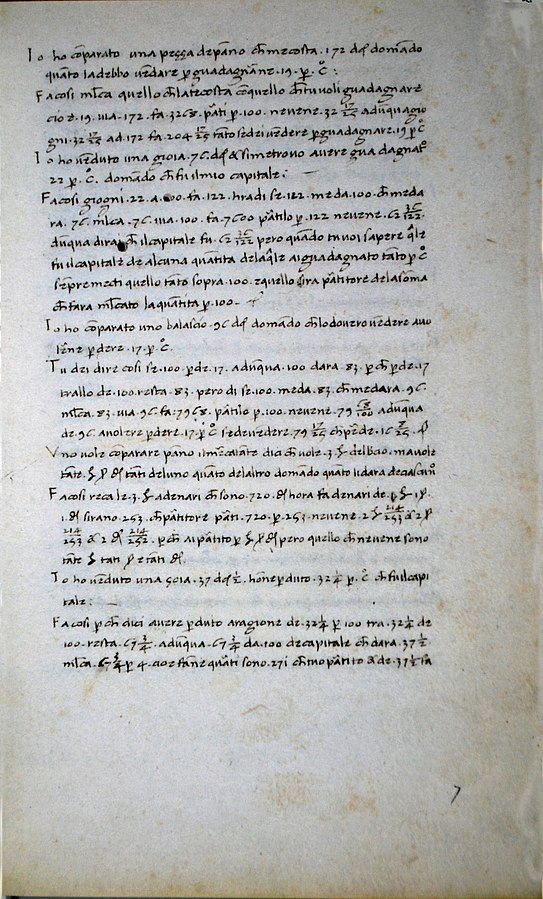 Io ho cōparato una peçça de pāno ch̄ me costa .172 dҁ domādo
quāto la debbo vēdare p̱ guadagnāne .19. p̱ C̊ :
Fa cosi m̄lca quello ch̄ la te costa cō quello ch̄ tu voli guadagnare
cio e .19. via .172. fa .3268. p̄ati p̱ .100. nevene .32 17/25 adūqua giō
gni .32 17/25 ad .172 fa .204 17/25 tāto se dei vēdere p̱ guadagnare .19 p̱ C̊
Io ho vēduto una gioia .76. dҁ & si me trovo avere guadagnāto
22 p̱ C̊. domādo ch̄ fu il mio capitale :
Fa cosi giōgni .22. a .100. fa .122. hora di se .122. me da .100. ch̄ me da
ra .76. m̄lca .76. via .100. fa .7600 p̄atilo p̱ .122 nevene .62 36/122
dūqua dirai ch̄ il capitale fu .62 36/122 pero quādo tu voi sapere q̄lle
fu il capitale de alcuna quātita de la q̄le ai guadagnato tāto p̱ C̊
sēpre mecti quello tāto sopra .100. e quello sira p̄atitore de la soma
ch̄ fara m̄lcato la quātita p̱ .100.
Io ho cōparato uno balascio .96 dҁ domādo ch̄ lo dovero vēdere a vo
lēne p̱dere .17. p̱ C̊.
Tu dei dire cosi se .100. p̱de .17. adūqua .100 dara .83. p̱ ch̄ p̱de .17
trallo de .100. resta .83. pero di se .100. me da .83. ch̄ me dara .96.
m̄lca .83. via .96. fa .7968. p̄atilo p̱ .100. nevene .79 68/100 adūqua
de .96. a volere p̱dere .17. p̱ C̊ se de vēdere .79 17/25 ch̄ p̱de .16 8/25
Uno vole cōparare pāno il mercatāte dici ch̄ vole .3. del bracio. ma vole
tāte tāti de l uno quāto de l altro domādo quāto li dara de ciascūo
Fa cosi recale .3. a denari ch̄ sono .720. hora fa denari de .1.
.1. sirano .253. ch̄ p̄atitore p̄ati .720. p̱ .253. nevene .2 214/253 & 2
214/253 & 2 214/253. p̱ ch̄ ai p̄atito p̱ pero quello ch̄ nevene sono
tāte tāti e tāti.
Io ho vēduto una gioia .37 dҁ 1/2. honne p̱duto .32 1/4 p̱ C̊ ch̄ fu il capi
tale :
Fa cosi p̱ ch̄ dici avere p̱duto a ragione de .32 1/4 p̱ 100 tra .32 1/4 de
100. resta .67 3/4. adūqua .67 3/4 da .100 de capitale ch̄ dara .37 1/2
m̄lca .67 3/4 p̱ 4. cioe fāne quāti sono .271 ch̄ tuo p̄atitore & de .37 1/2 fa
7